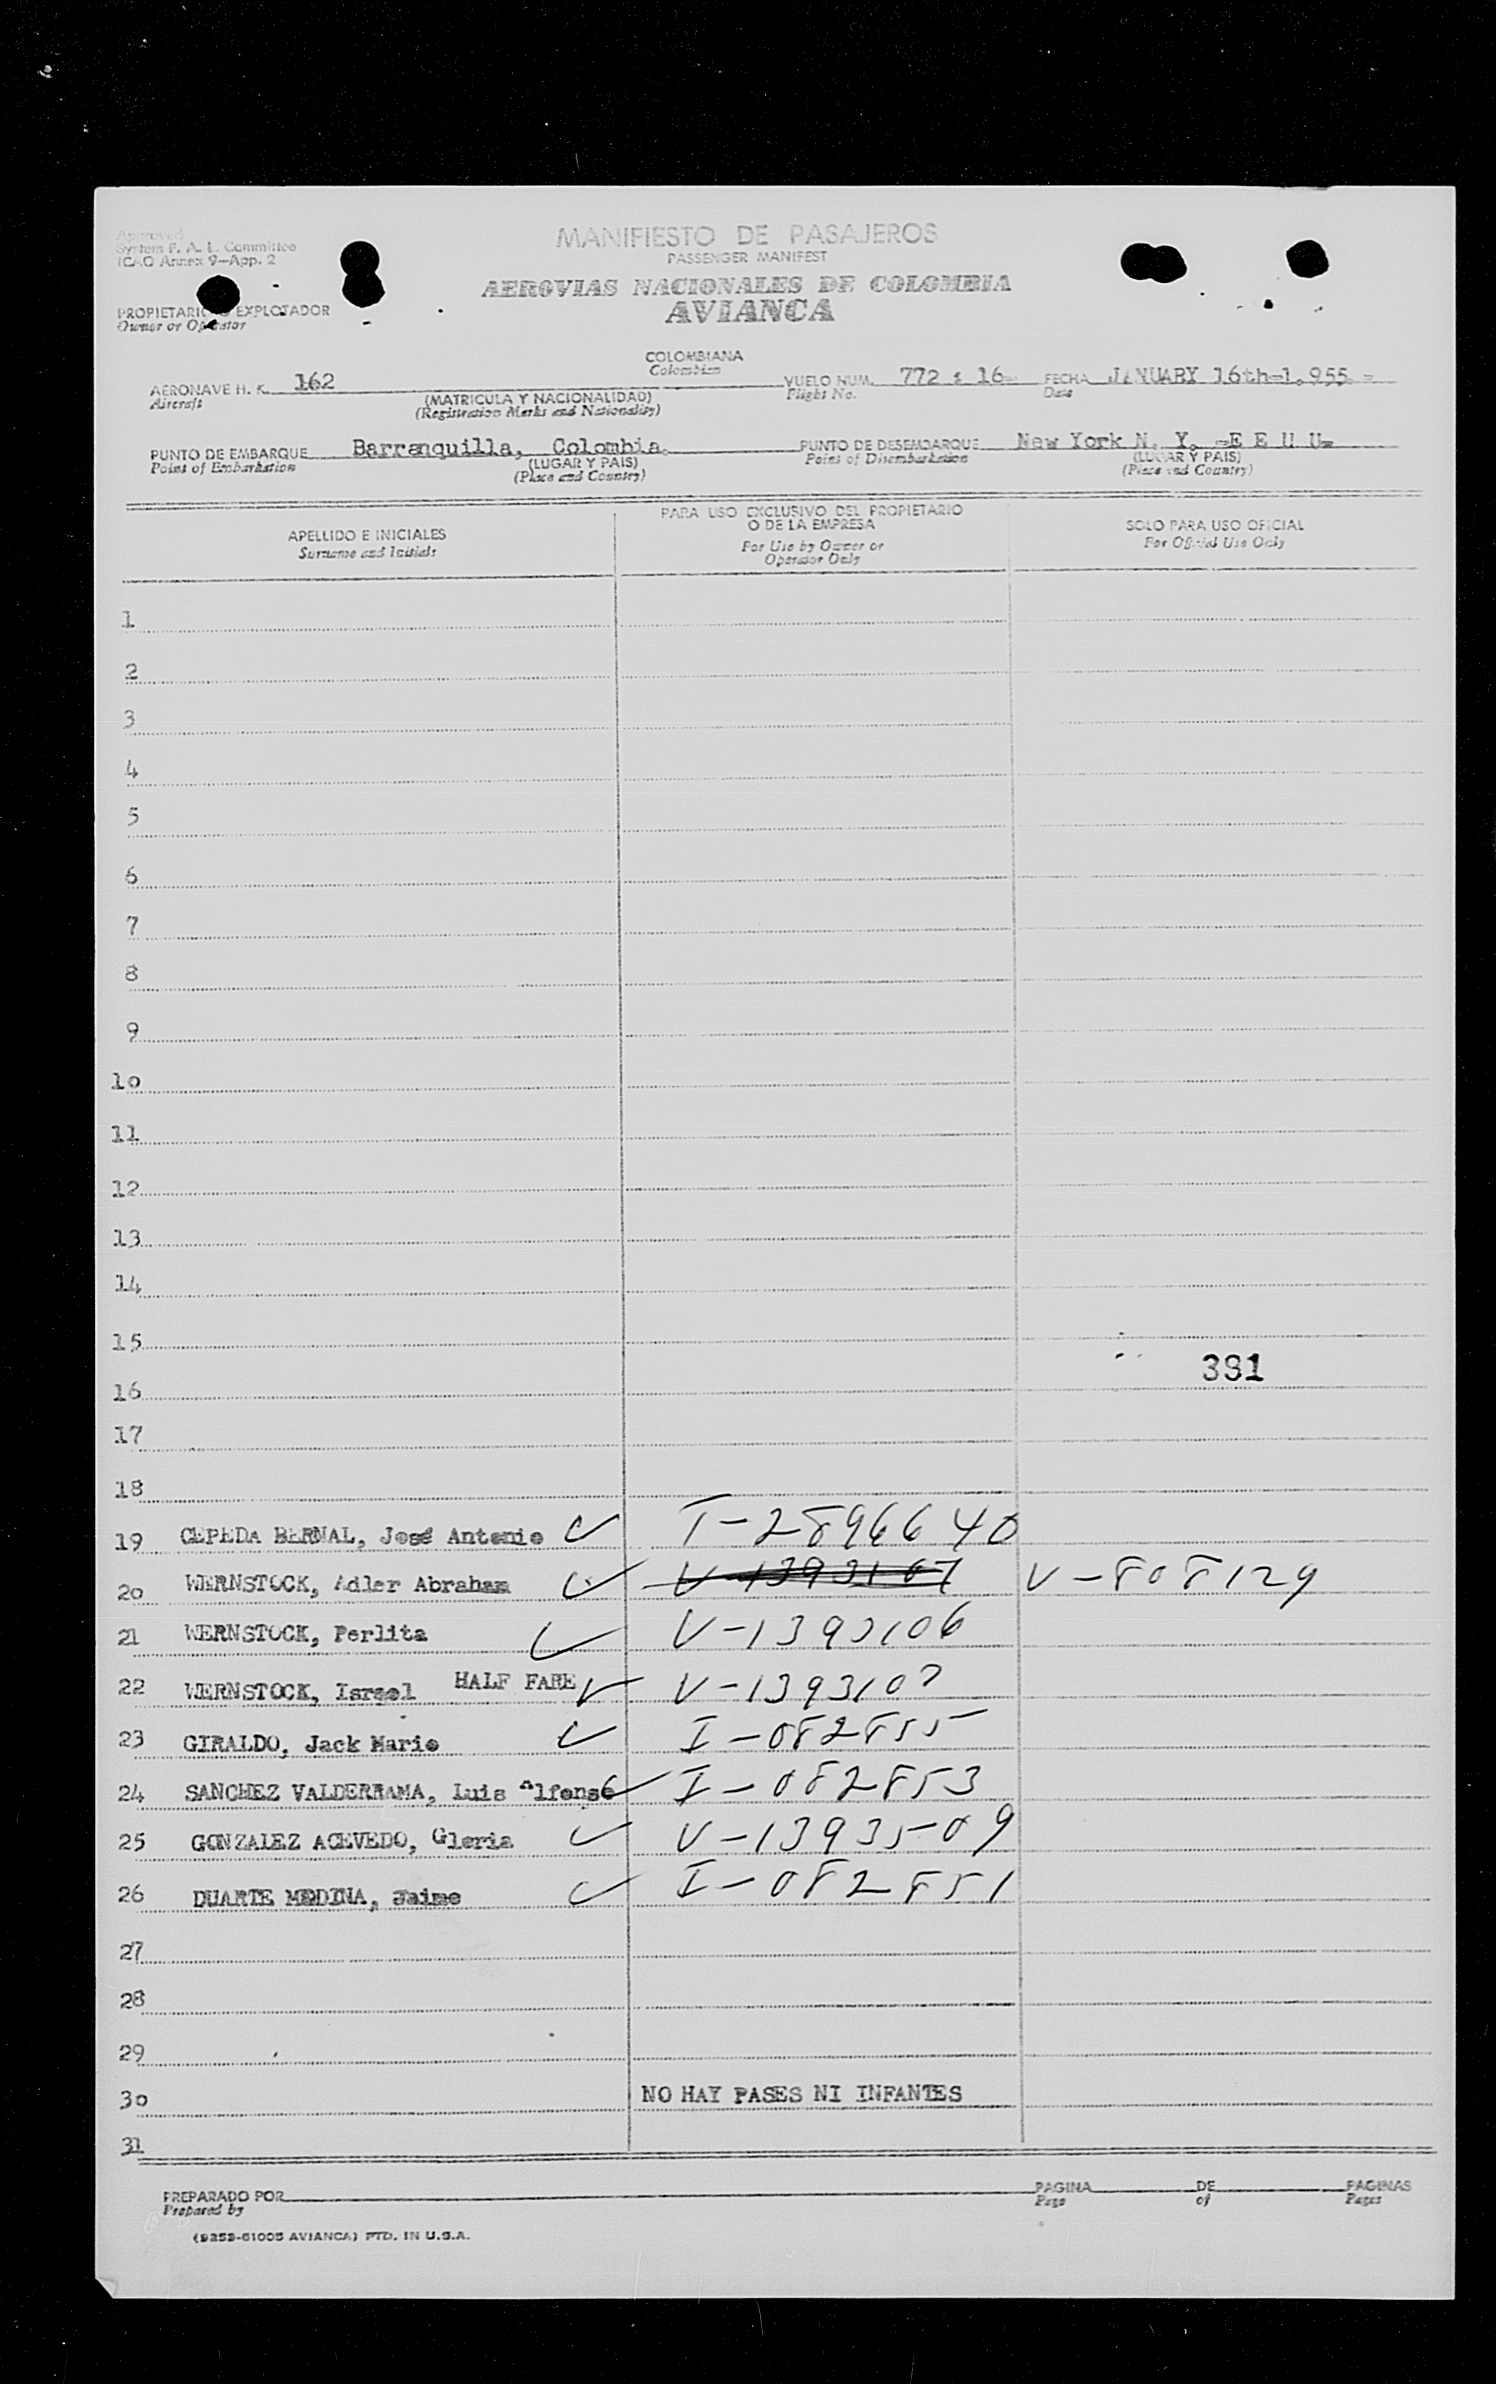 Approved
System F. A. L. Committee
ICAO Annex 9—App. 2
MANIFIESTO DE PASAJEROS
PASSENGER MANIFEST
AEROVIAS NACIONALES DE COLOMBIA
AVIANCA
PROPIETARIO EXPLOTADOR
Owner or Operator
COLOMBIANA
Colombian
AERONAVE H. K. 162 VUELO NUM. 772 : 16- FECHA JANUARY 16th-1.955 -
Aircraft (MATRICULA Y NACIONALIDAD) Flight No. Date
(Registration Marks and Nationality)
PUNTO DE EMBARQUE Barranquilla, Colombia. PUNTO DE DESEMBARQUE New York N. Y. -E E U U-
Point of Embarkation (LUGAR Y PAIS) Point of Disembarkation (LUGAR Y PAIS)
(Place and Country) (Place and Country)
APELLIDO E INICIALES
Surname and Initials
PARA USO EXCLUSIVO DEL PROPIETARIO
O DE LA EMPRESA
For Use by Owner or
Operator Only
SOLO PARA USO OFICIAL
For Official Use Only
1
2
3
4
5
6
7
8
9
10
11
12
13
14
15
381
16
17
18
19 CEPEDA BERNAL, José Antonio T-2896640
20 WERNSTOCK, Adler Abraham V-1393107 V-808129
21 WERNSTOCK, Perlita V-1393106
22 WERNSTOCK, Israel HALF FARE V-1393107
23 GIRALDO, Jack Mario I-082855
24 SANCHEZ VALDERRAMA, Luis Alfonso I-082853
25 GONZALEZ ACEVEDO, Gloria V-1393509
26 DUARTE MEDINA, Jaime I-082851
27
28
29
30 NO HAY PASES NI INFANTES
31
PREPARADO POR PAGINA DE PAGINAS
Prepared by Page of Pages
(9253-61005 AVIANCA) PTD. IN U.S.A.